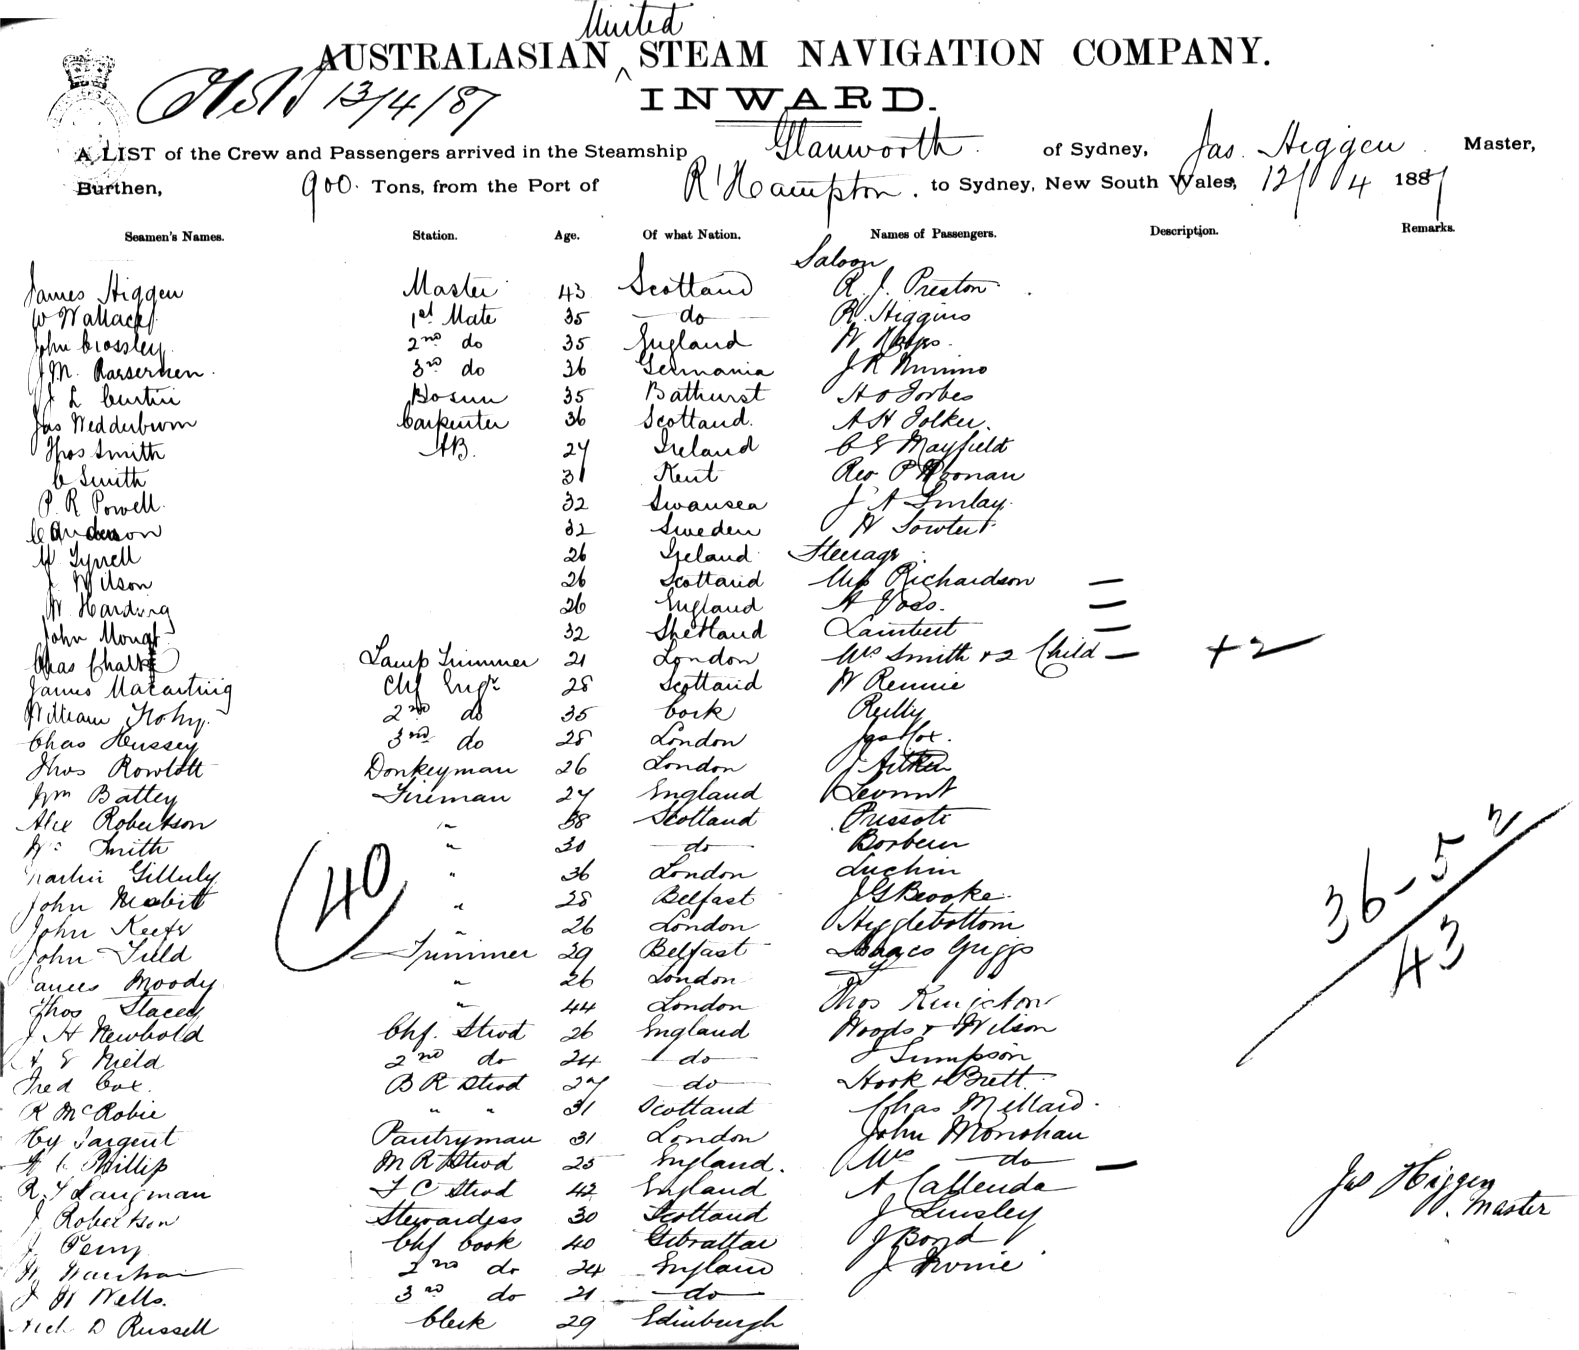 United
AUSTRALASIAN ^ STEAM NAVIGATION COMPANY.
13/4/87
INWARD.
A LIST of the Crew and Passengers arrived in the Steamship Glanworth of Sydney, Jas. Higgen Master,
Burthen, 900 Tons, from the Port of R'Hampton. to Sydney, New South Wales, 12/4 1887
Seamen's Names. Station. Age. Of what Nation. Names of Passengers. Description. Remarks.
Saloon
James Higgen Master 43 Scotland R. J. Preston
W Wallace 1st Mate 35 do R. Higgins
John Crossley 2nd do 35 England W
J.M. 3rd do 36 Germania J R Nimmo
J L Curtin Bosun 35 Bathurst H O Forbes
Jas Wedderburn Carpenter 36 Scotland. A H Folker.
Thos Smith AB. 27 Ireland C E Mayfield
C Smith 31 Kent Rev P
P. R Powell. 32 Swansea J A
C Anderson 32 Sweden H
M Tyrrell 26 Ireland Steerage
J Wilson 26 Scotland Richardson —
W. Harding 26 England A Voss. —
John Mouat 32 Shetland Lambert —
Chas Lamp Trimmer 21 London Mrs Smith + 2 Child — +2
James Chf Engr 28 Scotland W Rennie
William 2nd do 35 Cork Reilly
Chas Hussey 3rd do 28 London Jas Cox.
Thos Rowlatt Donkeyman 26 London J Aitken
Wm Battey Fireman 27 England
Alex Robertson " 38 Scotland
Wm Smith " 30 do
Martin Gilluly " 36 London Luchin
John Nesbitt " 28 Belfast J G Brooke.
John Keefe " 26 London Higglebottom
John Field Trimmer 29 Belfast Isaacs Griggs
James Moody " 26 London
Thos Stacey " 44 London Thos Kingston
J H Newbold Chf. Stwd 26 England Woods & Wilson
A E Nield 2nd do 24 do J Simpson
Fred Cox. B R Stwd 27 do Hook & Brett.
R McRobie " " 31 Scotland Chas Millard.
Hy Sargent Pantryman 31 London John Monohan
Phillip M R Stwd 25 England. Mrs do —
R T Langman F C Stwd 42 England A Callenda
J Robertson Stewardess 30 Scotland J Linsley
J. Perry Chf Cook 40 Gibraltar J Bond
W 2nd do 24 England J Irvine
J H Wells. 3rd do 21 do
D Russell Clerk 29 Edinburgh
40
36-5 2
43
Jas Higgen
Master